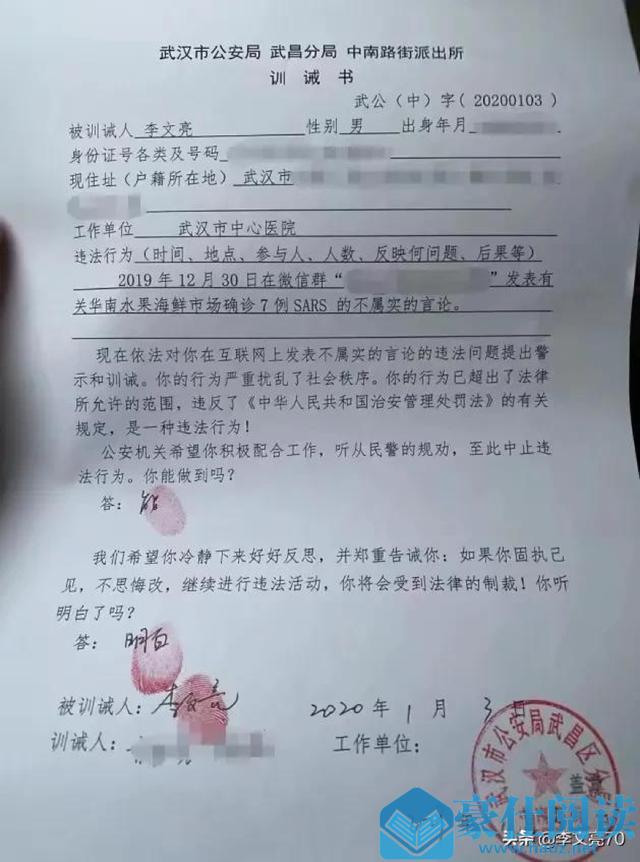 武汉市公安局 武昌分局 中南路街派出所
训 诫 书
武公（中）字( 20200103 )
被训诫人 李文亮 性别 男 出身年月
身份证号各类及号码
现住址(户籍所在地) 武汉市
工作单位 武汉市中心医院
违法行为(时间、地点、参与人、人数、反映何问题、后果等)
2019 年 12 月 30 日在微信群“ ”发表有
关华南水果海鲜市场确诊 7 例 SARS 的不属实的言论。
现在依法对你在互联网上发表不属实的言论的违法问题提出警
示和训诫。你的行为严重扰乱了社会秩序。你的行为已超出了法律
所允许的范围，违反了《中华人民共和国治安管理处罚法》的有关
规定，是一种违法行为！
公安机关希望你积极配合工作，听从民警的规劝，至此中止违
法行为。你能做到吗？
答：能
我们希望你冷静下来好好反思，并郑重告诫你：如果你固执己
见，不思悔改，继续进行违法活动，你将会受到法律的制裁！你听
明白了吗？
答：明白
被训诫人：李文亮 2020 年 1 月 3 日
训诫人： 工作单位：
武汉市公安局武昌区分局
盖章
豪仕阅读
头条@李文亮70